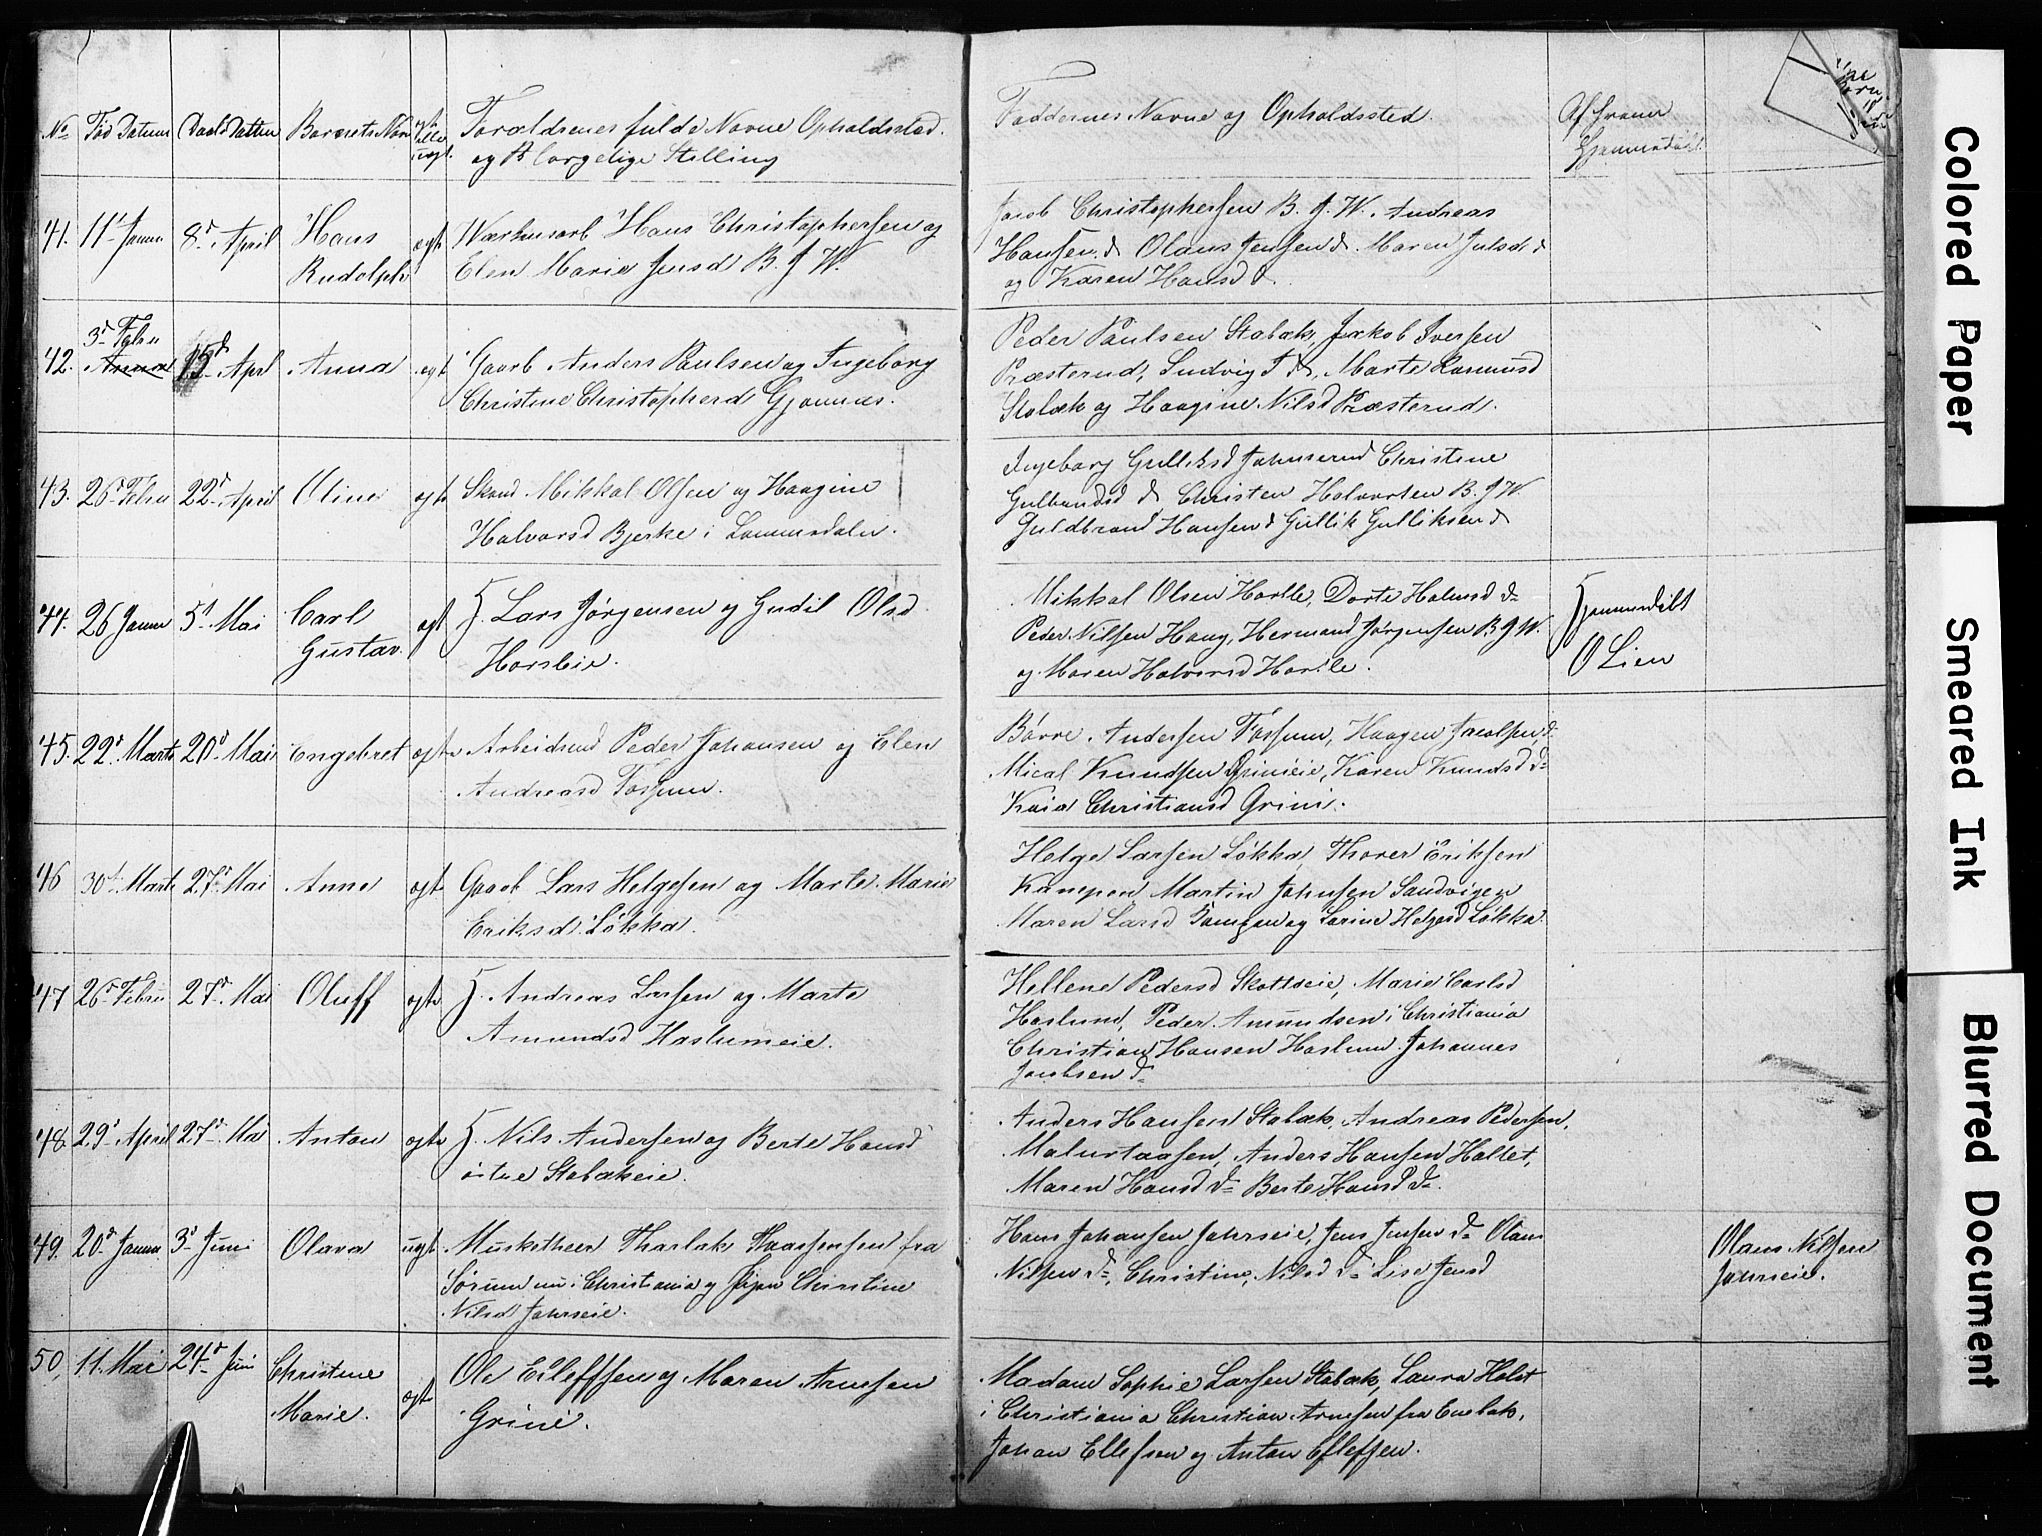 No Fød Datum Daabs Datten Barnets Navn ægte elle uægt. Forældrenes fulde Navne Opholdssted.
og Borgelige Stilling
Faddernes Navne og Opholdssted.
Af hvem
Hjemmedøbt
41. 11t Janu 8d April Hans
Rudolph ægt
Værkusarb Hans Christophersen og
Elen Marie Jensd B. J. W.
Jacob Christophersen B. J. W. Andreas
Hansen d Olaus Jensen d. Maren Julsd d
og Karen Hansd d.
42. 3d Febru 15d Apr Anna ægt
Gaarb Anders Paulsen og Ingeborg
Christine Christophersd Gjønnes.
Peder Paulsen Stabæk, Jakob Iversen
Præsterud, Ludvig I d, Marte Rasmusd
Stabæk og Haagine Nilsd Præsterud.
43. 26d Febru 22d April Oline ægt
Skræd Mikkal Olsen og Haagine
Halvorsd Bjerke i Lommedalen.
Ingeborg Gulliksd Johnserud Christine
Gulbrandsd d Christen Halvorsen B. J. W.
Guldbrand Hansen d Gullik Gulliksen d
44. 26 Janu 5t Mai Carl
Gustav. ægt
H. Lars Jørgensen og Gudil Olsd
Horsleie.
Mikkal Olsen Horsle, Dorte Halvorsd do
Peder Nilsen Haug, Hermand Jørgensen B. J. W.
og Maren Halvorsd Horsle.
Hjemmedøbt
O Lien
45. 22d Marts 20d Mai Engebret ægte
Arbeidsmd Peder Johansen og Elen
Andreasd Fossum.
Børre Andersen Fossum, Haagen Jacobsen, do
Mical Knudsen Grinieie, Karen Knudsd do
Kaia Christiansd Grini.
46 30d Marts 27d Mai Anne ægt
Gaarb Lars Helgesen og Marte Marie
Eriksd Løkka.
Helge Larsen Løkka, Thorer Eriksen
Kampen Martin Johnsen Sandvigen
Maren Larsd Kampen og Larine Helgesd Løkka.
47 26d Febru 27d Mai Oluff ægte
H. Andreas Larsen og Marte
Amundsd Haslumeie.
Hellene Pedersd Skottseie, Marie Carlsd
Haslum, Peder Amundsen i Christiania
Christian Hansen Haslum Johannes
Jacobsen do
48 29d April 27d Mai Anton ægte
H. Nils Andersen og Berte Hansd
østre Stabækeie.
Anders Hansen Stabæk, Andreas Pedersen,
Malurtaasen, Anders Hansen Hallet,
Maren Hansd do Berte Hansd do.
49. 20d Janu 3d Juni Olava uægt
Musketheer Tharlak Haagensen fra
Sørum nu i Christiania og Pigen Christine
Nilsd Jahrseie.
Hans Johansen Jahrseie, Jens Jensen do Olaus
Nilsen do, Christine, Nilsd do Lise Jensd
Olaus Nilsen
Jahrseie.
50, 11. Mai 24d Juni Christine
Marie. ægte
Ole Eileffsen og Maren Arnesen
Grini.
Madam Sophie Larsen Stabæk, Laura Holst
i Christiania Christian Arnesen fra Enebak,
Johan Ellefsen og Anton Eileffsen.
Colored Paper
Smeared Ink
Blurred Document